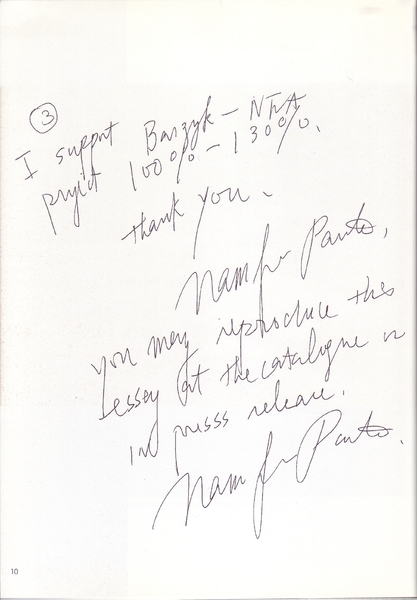 ③
I support Barzyk – NTA
projict 100% – 130%.
thank you.
Nam June Paik.
you may reproduce this
essey at the catalogue or
in presss release.
Nam June Paik.
10